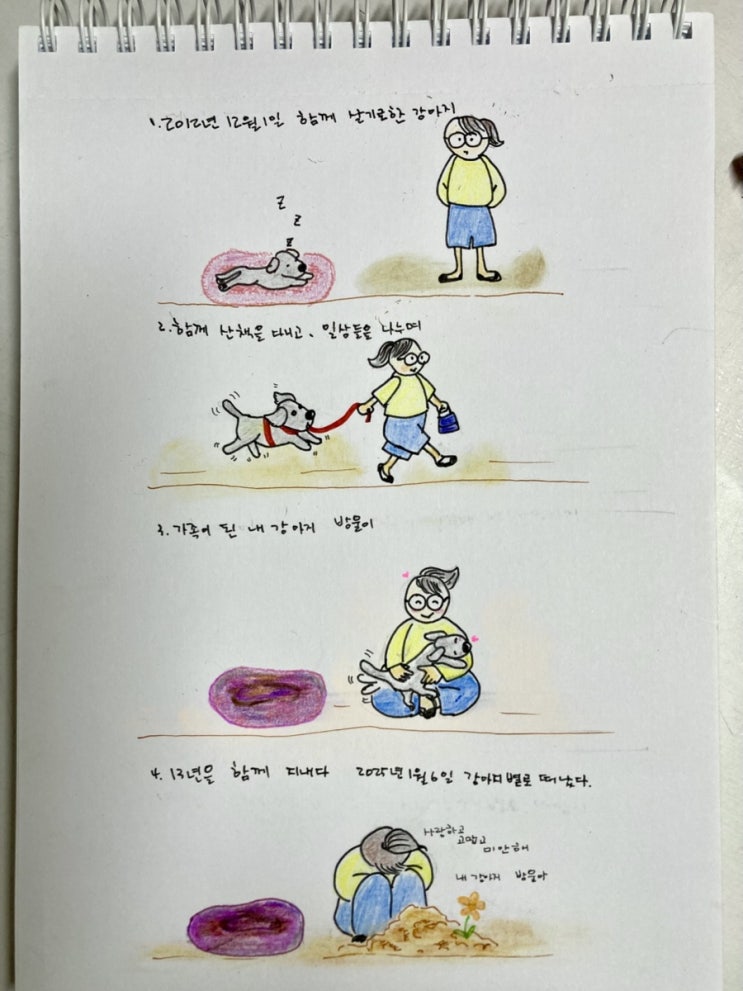 1. 2012년 12월 1일 함께 살기로한 강아지
z
z
z
2. 함께 산책을 다니고, 일상들을 나누며
3. 가족이 된 내 강아지 방울이
4. 13년을 함께 지내다 2025년 1월 6일 강아지별로 떠났다.
사랑하고
고맙고
미안해
내 강아지 방울아